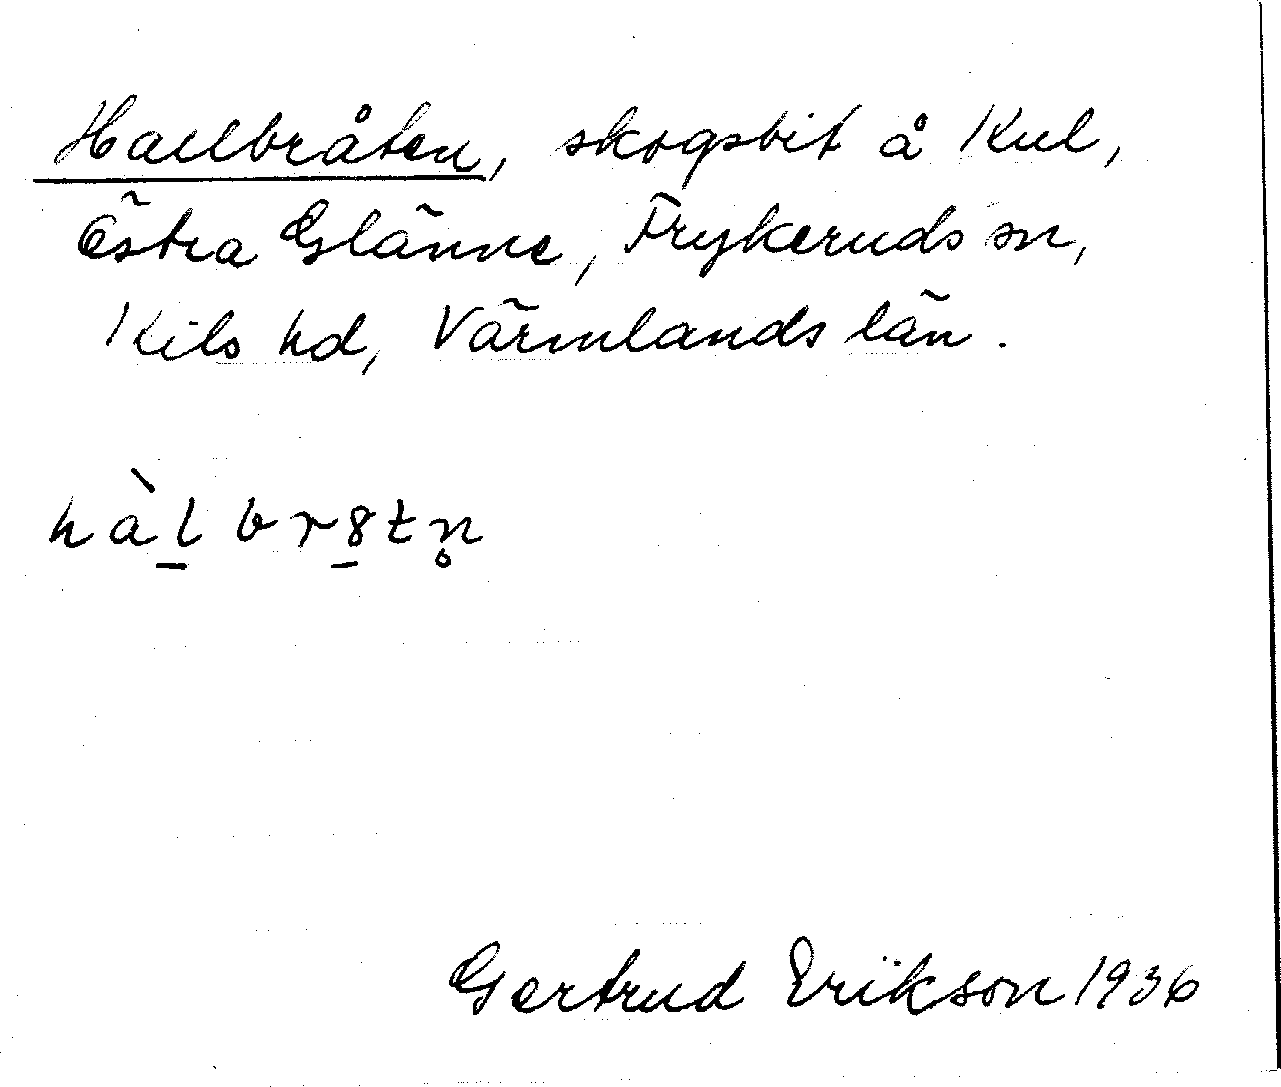 Hallbråten, skogsbit å Kul,
Östra Glänne, Frykeruds sn,
Kils hd, Värmlands län.
hàl̲ br8̲tn̥
Gertrud Erikson 1936